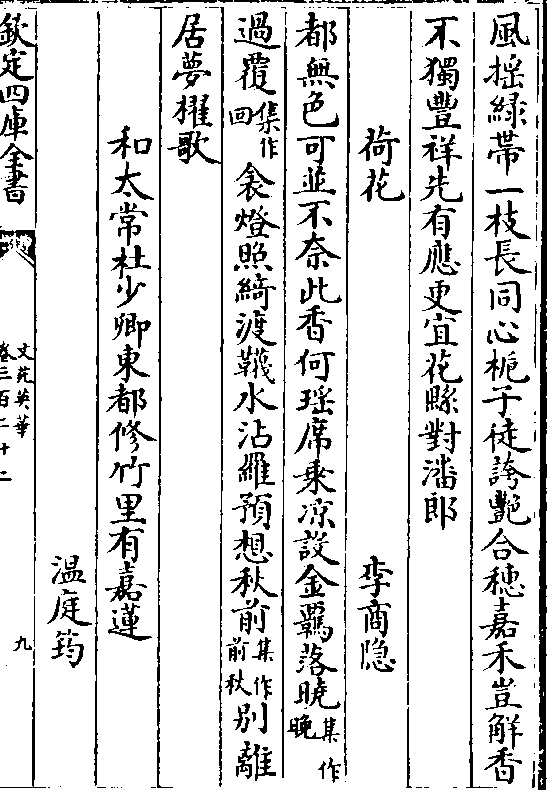 風揺綠帶一枝長同心梔子徒誇艷合穗嘉禾豈解香
不獨豐祥先有應更宜花縣對潘郎
荷花
李商隐
都無色可並不奈此香何瑶席乗凉設金羈落曉集作晚
過覆集作回衾燈照綺渡韈水沾羅預想秋前集作前秋别離
居夢櫂歌
和太常杜少卿東都修竹里有嘉蓮
温庭筠
欽定四庫全書
文苑英華
卷三百二十二
九